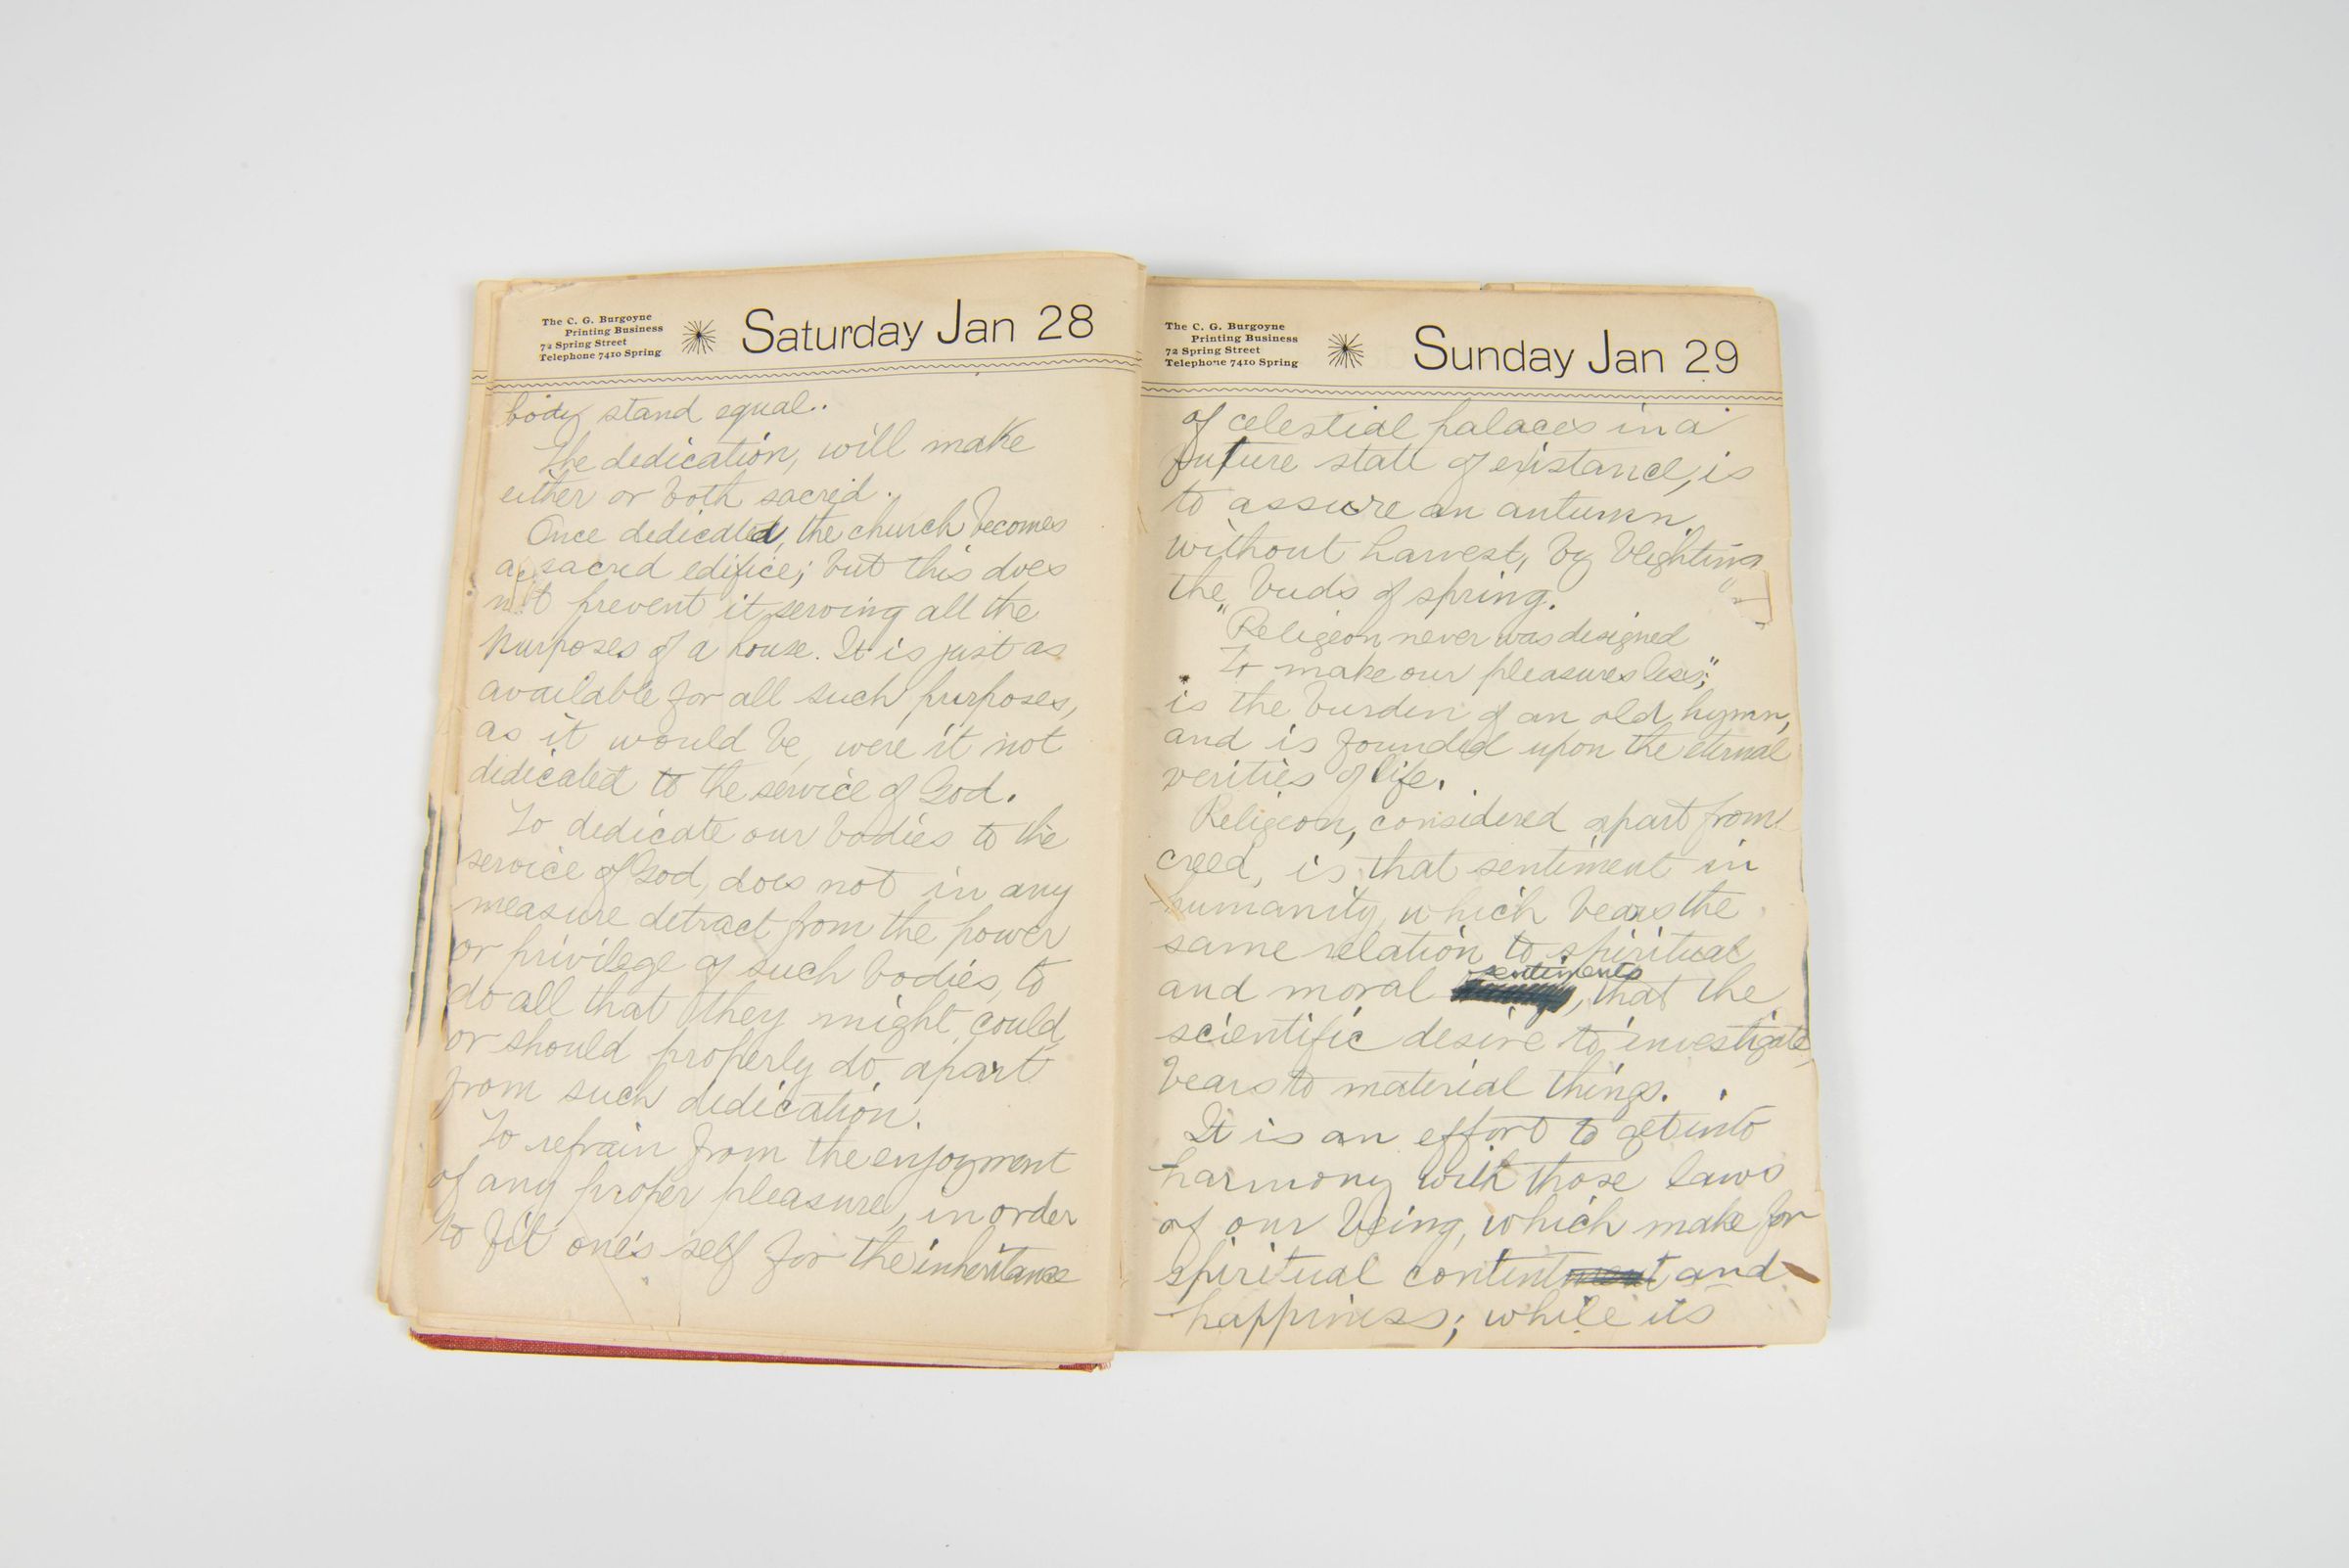 The C. G. Burgoyne
Printing Business
72 Spring Street
Telephone 7410 Spring
Saturday Jan 28
body stand equal..
The dedication, will make
either or both sacred.
Once dedicated, the church becomes
a sacred edifice; but this does
not prevent it serving all the
purposes of a house. It is just as
available for all such purposes,
as it would be, were it not
dedicated to the service of God.
To dedicate our bodies to the
service of God, does not in any
measure detract from the power
or privilege of such bodies, to
do all that they might, could,
or should properly do, apart
from such dedication.
To refrain from the enjoyment
of any proper pleasure, in order
to fit one's self for the inheritance
The C. G. Burgoyne
Printing Business
72 Spring Street
Telephone 7410 Spring
Sunday Jan 29
of celestial palaces in a
future state of existance, is
to assure an autumn
without harvest, by blighting
the buds of spring.
"Religeon never was designed
To make our pleasures less;"
is the burden of an old hymn,
and is founded upon the eternal
verities of life.
Religeon, considered apart from
creed, is that sentiment in
humanity, which bears the
same relation to spiritual
and moral sentiments, that the
scientific desire to investigate,
bears to material things.
It is an effort to get into
harmony with those laws
of our being, which make for
spiritual contentment and
happiness; while its